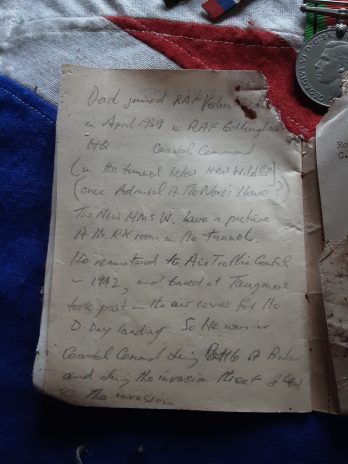 Dad joined RAF Volun
in April 1939 in RAF Gillingham
HQ Coastal Command
(in the tunnel below HMS Wildfire)
(once Admiral of The Nore's House)
The New HMS W. have a picture
of the RN room in the tunnel.
He remustered to Air Traffic Control
in 1942, and based at Tangmere
took part in the air cover for the
D Day landings. So He was in
Coastal Command during B of Britain
and during the invasion threat of
the invasion
Ro
C.